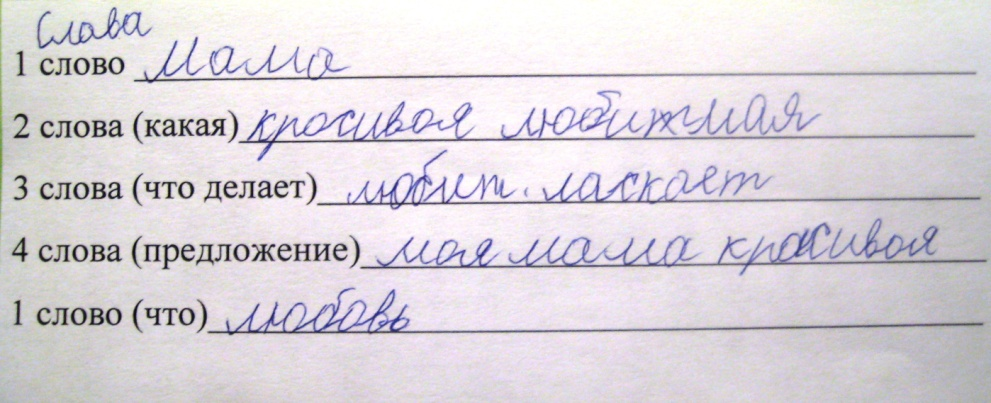 Слава
1 слово Мама
2 слова (какая) красивая любитмая
3 слова (что делает) любит. ласкает
4 слова (предложение) моя мама красивая
1 слово (что) любовь